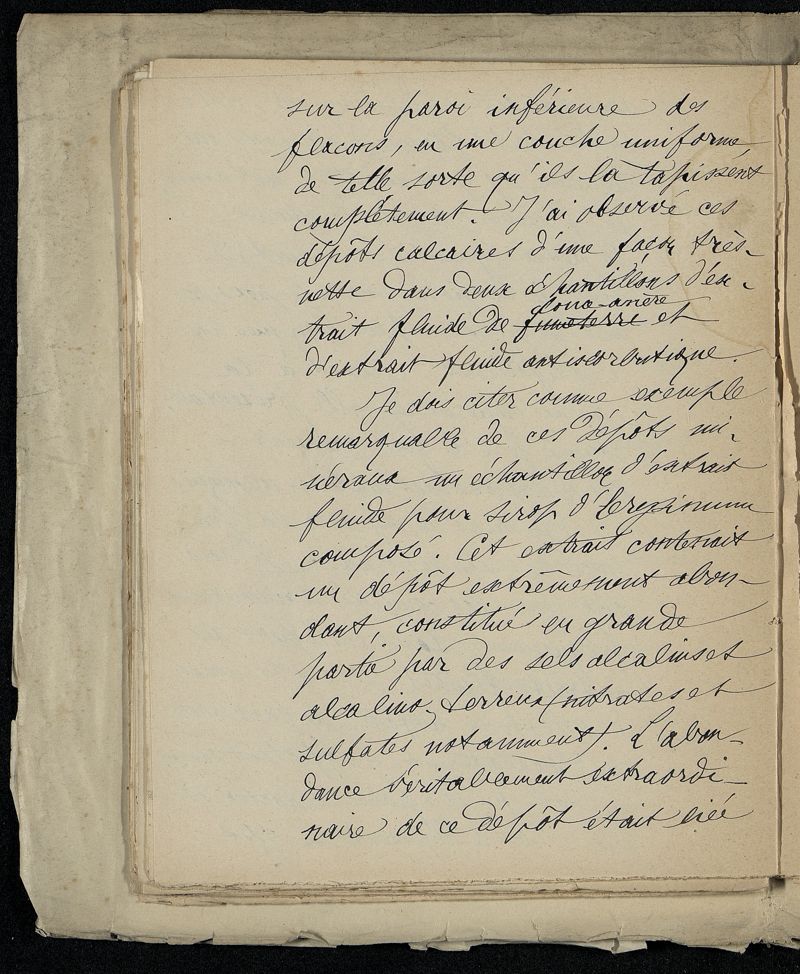 sur la paroi inférieure des
flacons, en une couche uniforme,
de telle sorte qu'ils la tapissent
complètement. J'ai observé ces
dépôts calcaires d'une façon très-
nette dans deux échantillons d'ex-
douce-amère
trait fluide de fumeterre et
d'extrait fluide antiscorbutique.
Je dois citer comme exemple
remarquable de ces dépôts mi-
néraux un échantillon d'extrait
fluide pour sirop d'Erysimum
composé. Cet extrait contenait
un dépôt extrêmement abon-
dant, constitué en grande
partie par des sels alcalins et
alcalino-terreux (nitrates et
sulfates notamment). L'abon-
dance véritablement extraordi-
naire de ce dépôt était liée